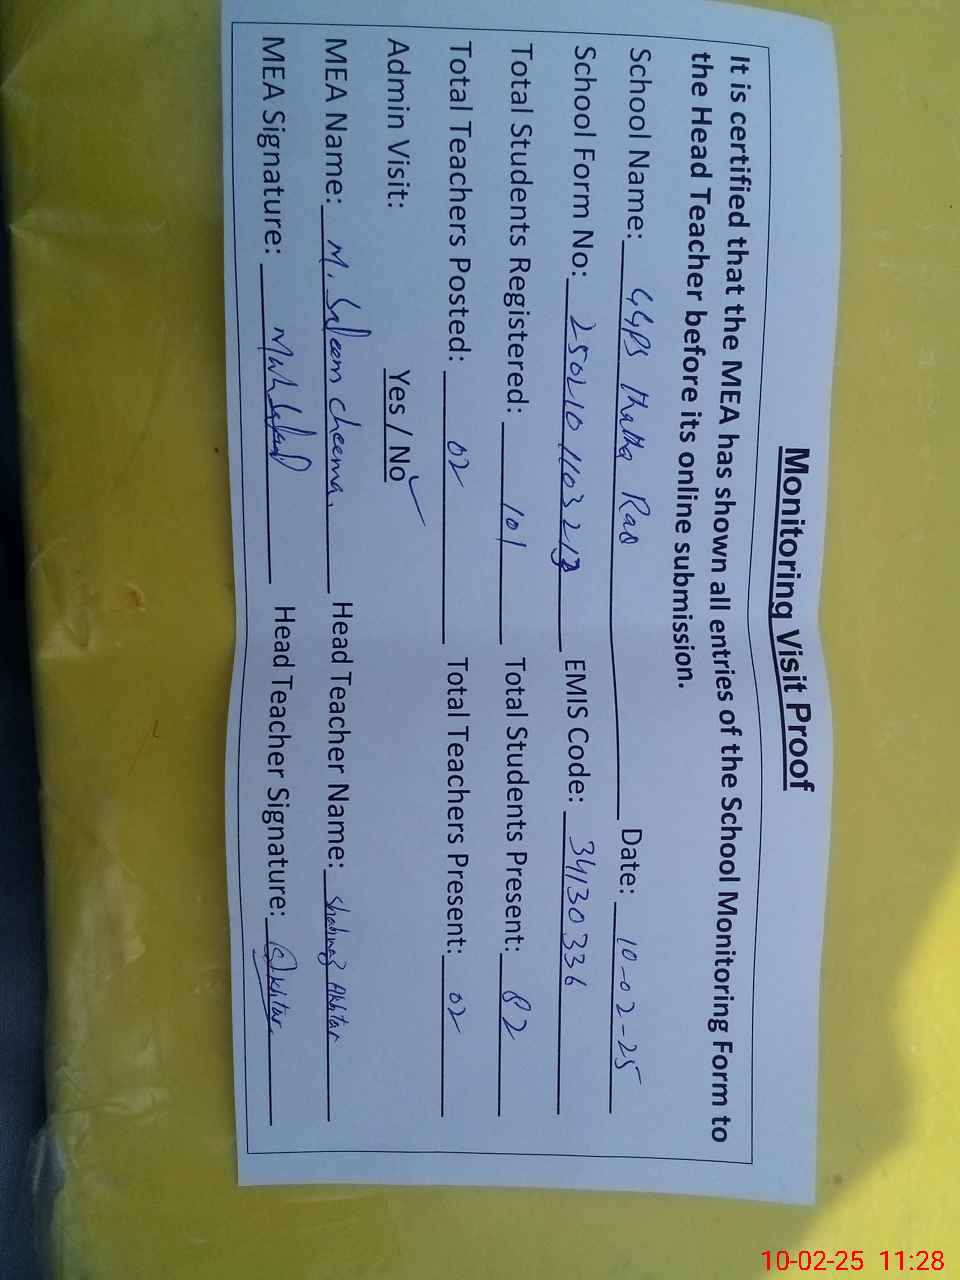 Monitoring Visit Proof
It is certified that the MEA has shown all entries of the School Monitoring Form to
the Head Teacher before its online submission.
School Name: GGPS Thatha Rao Date: 10-02-25
School Form No: EMIS Code: 34130336
Total Students Registered: 101 Total Students Present: 82
Total Teachers Posted: 02 Total Teachers Present: 02
Admin Visit: Yes / No ✓
MEA Name: M. Saleem Cheema. Head Teacher Name: Shahnaz Akhtar
MEA Signature: Head Teacher Signature:
10-02-25 11:28